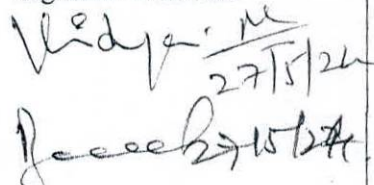 Vidya. M
27/5/24
27/5/24